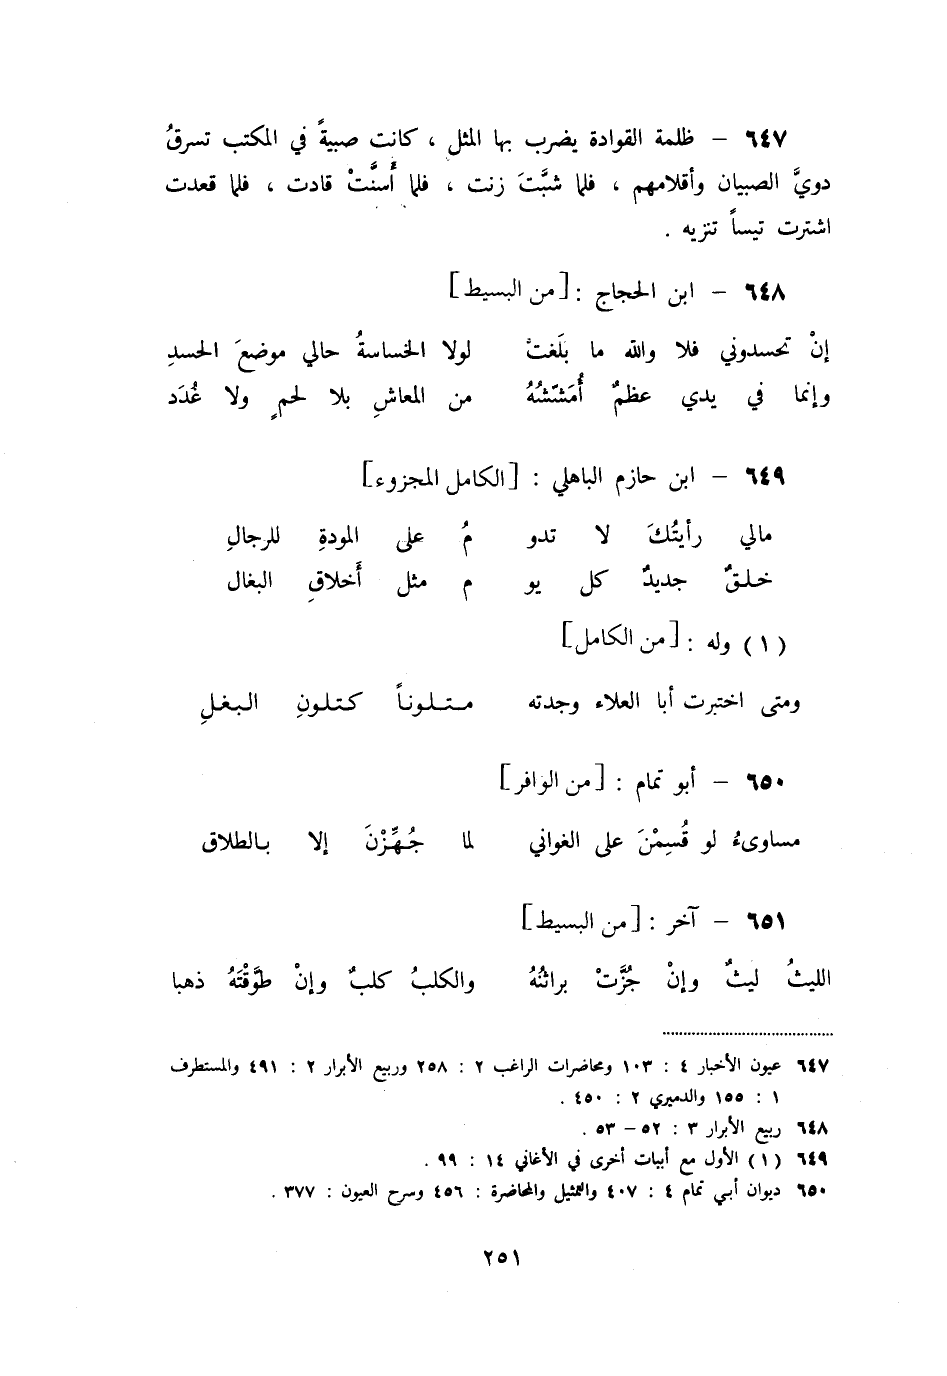 ٦٤٧ – ظلمة القوادة يضرب بها المثل ، كانت صبيةً في المكتب تسرقُ
دويَّ الصبيان وأقلامهم ، فلما شبَّتَ زنت ، فلما أَسنَّتْ قادت ، فلما قعدت
اشترت تيساً تنزيه .
٦٤٨ – ابن الحجاج : [من البسيط]
إنْ تحسدوني فلا والله ما بلَغتْ لولا الخساسةُ حالي موضعَ الحسدِ
وإنما في يدي عظمٌ أُمَشّشُهُ من المعاشِ بلا لحمٍ ولا غُدَد
٦٤٩ – ابن حازم الباهلي : [الكامل المجزوء]
مالي رأيتُكَ لا تدو مُ على المودةِ للرجالِ
خلقٌ جديدٌ كل يو م مثل أَخلاقِ البغال
(١) وله : [من الكامل]
ومتى اختبرت أبا العلاء وجدته متلوناً كتلونِ البغلِ
٦٥٠ – أبو تمام : [من الوافر]
مساوىءُ لو قُسِمْنَ على الغواني لما جُهِّزْنَ إلا بالطلاق
٦٥١ – آخر : [من البسيط]
الليثُ ليثٌ وإنْ جُزَّتْ براثنُهُ والكلبُ كلبٌ وإنْ طوَّقْتَهُ ذهبا
٦٤٧ عيون الأخبار ٤ : ١٠٣ ومحاضرات الراغب ٢ : ٢٥٨ وربيع الأبرار ٢ : ٤٩١ والمستطرف
١ : ١٥٥ والدميري ٢ : ٤٥٠ .
٦٤٨ ربيع الأبرار ٣ : ٥٢ – ٥٣ .
٦٤٩ (١) الأول مع أبيات أخرى في الأغاني ١٤ : ٩٩ .
٦٥٠ ديوان أبي تمام ٤ : ٤٠٧ والتمثيل والمحاضرة : ٤٥٦ وسرح العيون : ٣٧٧ .
٢٥١